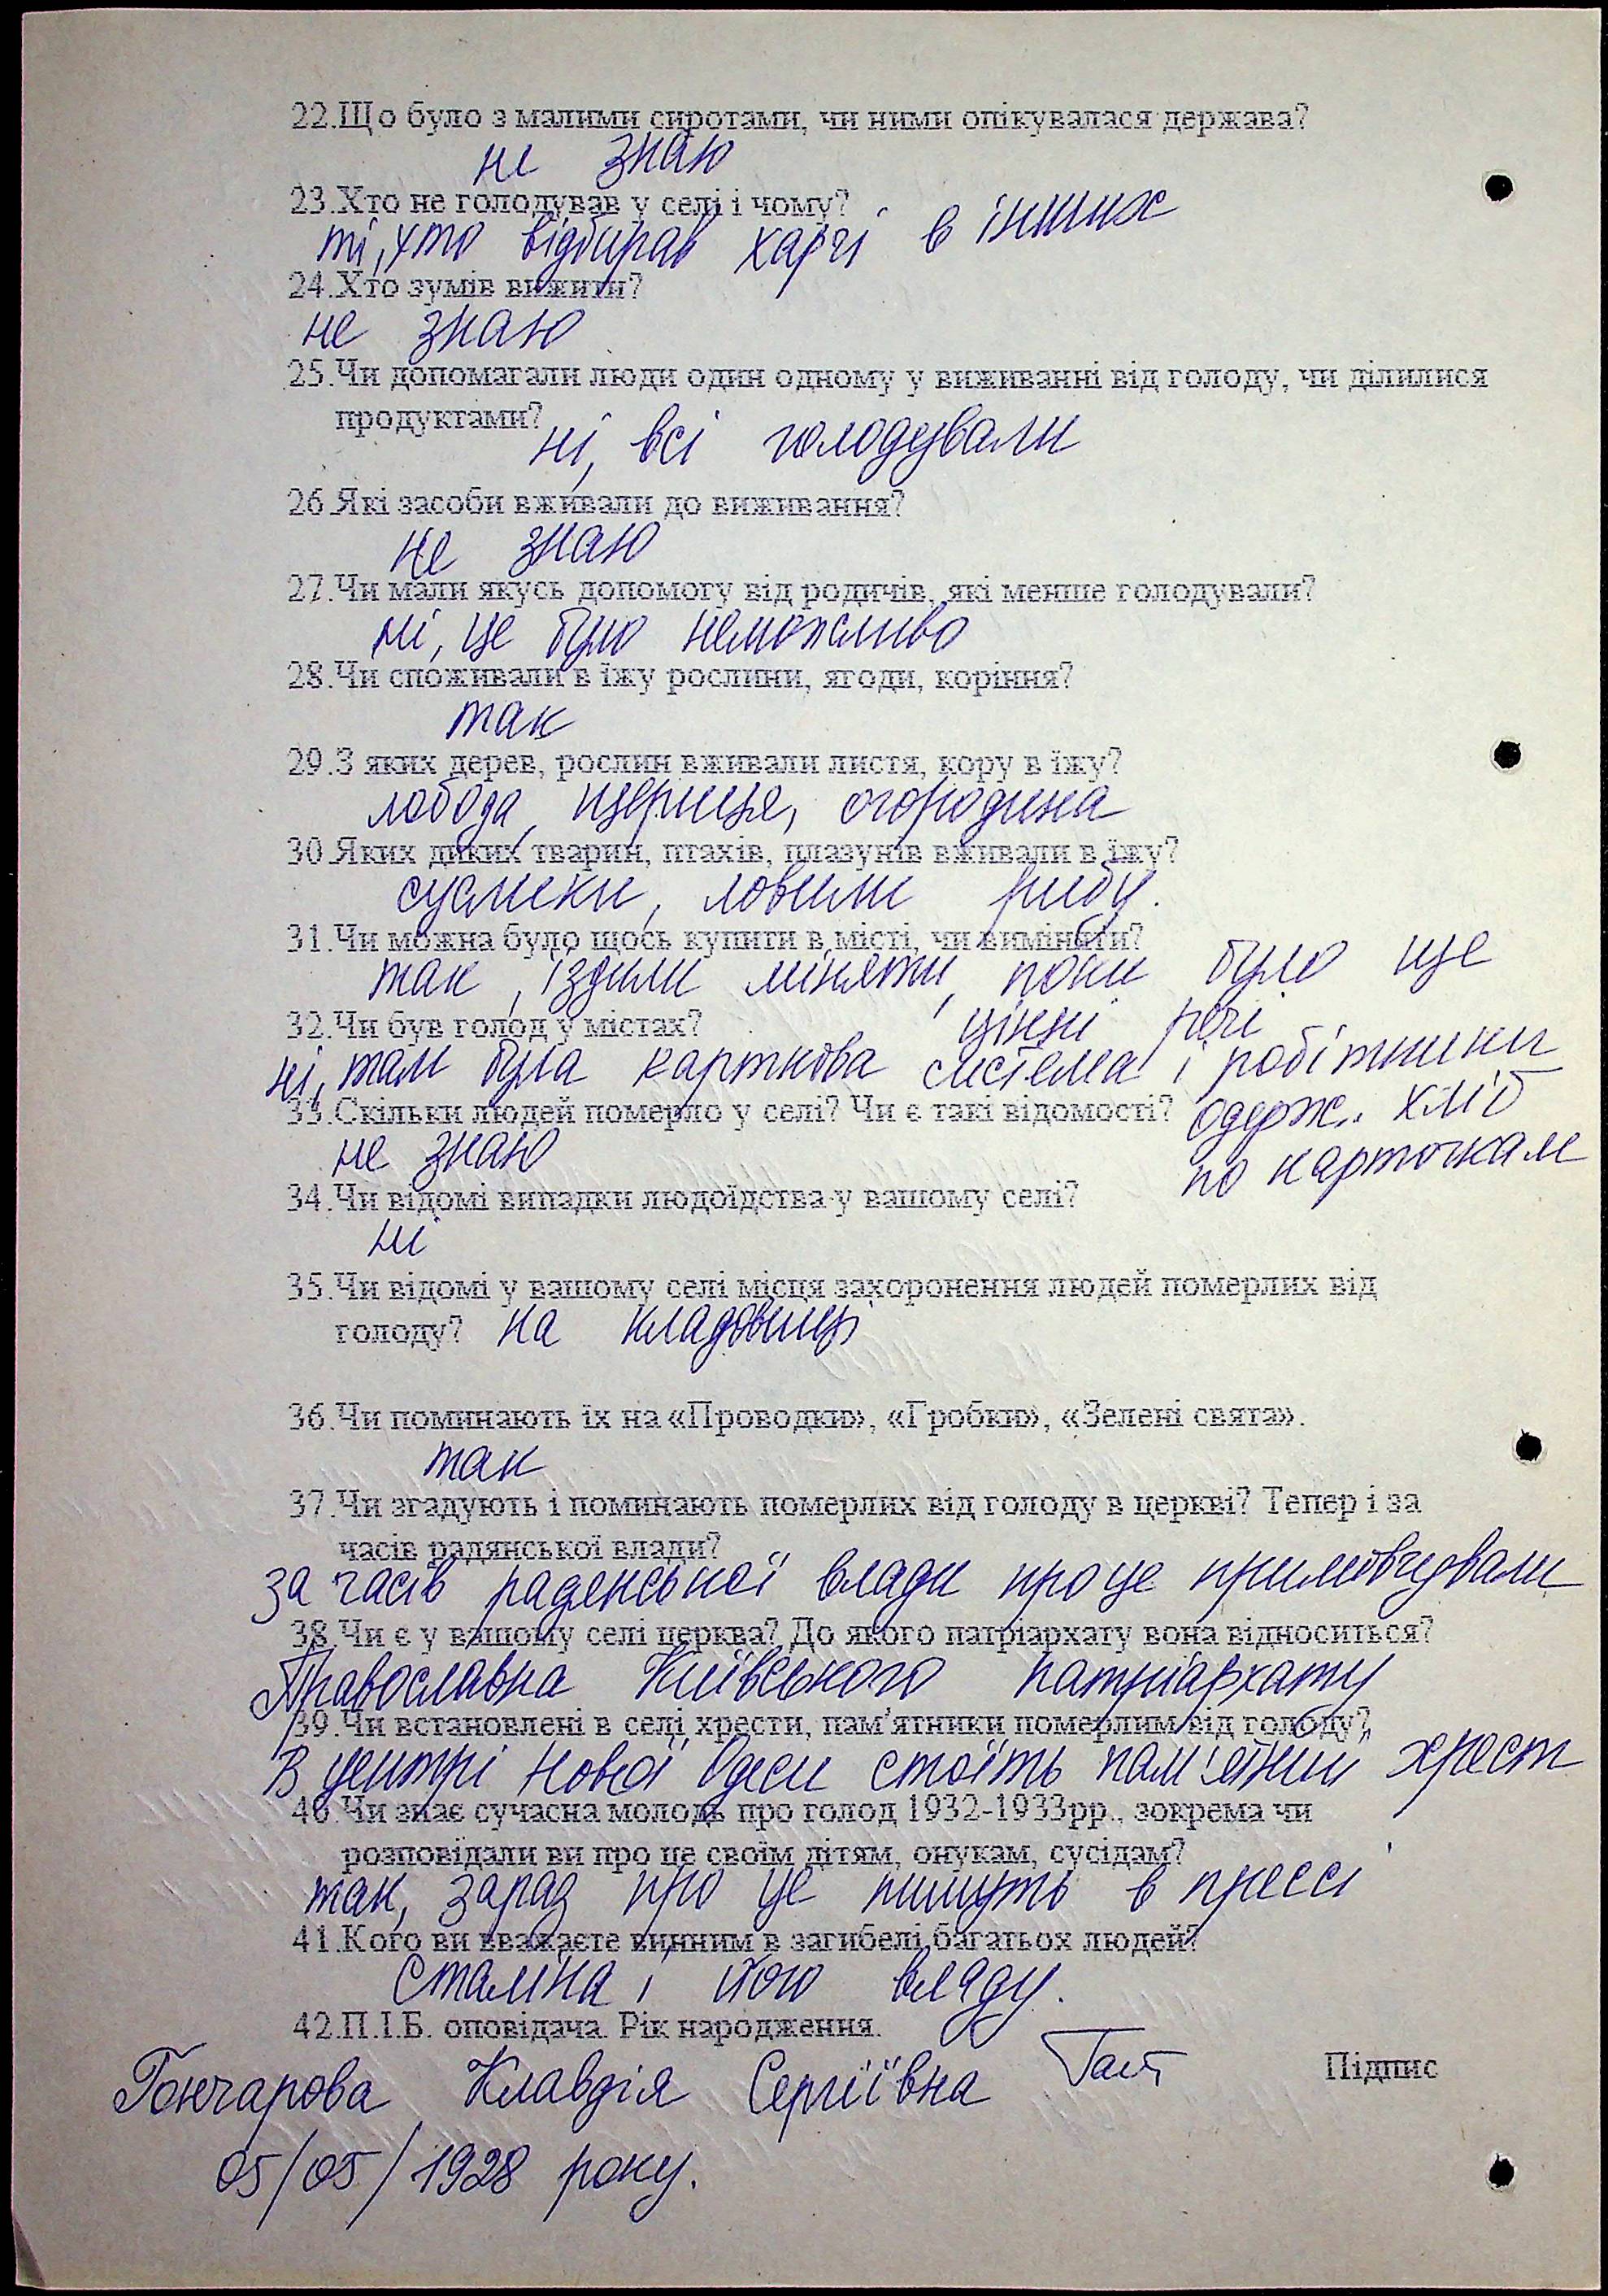 22.Що було з малими сиротами, чи ними опікувалася держава?
не знаю
23.Хто не голодував у селі і чому?
ті, хто відбирав харчі в інших
24.Хто зумів вижити?
не знаю
25.Чи допомагали люди один одному у виживанні від голоду, чи ділилися
продуктами?
ні, всі голодували
26.Які засоби вживали до виживання?
не знаю
27.Чи мали якусь допомогу від родичів, які менше голодували?
ні, це було неможливо
28.Чи споживали в їжу рослини, ягоди, коріння?
так
29.З яких дерев, рослин вживали листя, кору в їжу?
лобода, щериця, огородина
30.Яких диких тварин, птахів, плазунів вживали в їжу?
суслики, ловили рибу.
31.Чи можна було щось купити в місті, чи виміняти?
так, їздили міняти, поки було ще
цінні речі
32.Чи був голод у містах?
ні, там була карткова система і робітники
одерж. хліб
по карточкам
33.Скільки людей померло у селі? Чи є такі відомості?
не знаю
34.Чи відомі випадки людоїдства у вашому селі?
ні
35.Чи відомі у вашому селі місця захоронення людей померлих від
голоду? на кладовищі
36.Чи поминають їх на «Проводки», «Гробки», «Зелені свята».
так
37.Чи згадують і поминають померлих від голоду в церкві? Тепер і за
часів радянської влади?
за часів радянської влади про це примовчували
38.Чи є у вашому селі церква? До якого патріархату вона відноситься?
Православна Київського патріархату
39.Чи встановлені в селі хрести, пам'ятники померлим від голоду?
В центрі Нової Одеси стоїть пам'ятний хрест
40.Чи знає сучасна молодь про голод 1932-1933рр., зокрема чи
розповідали ви про це своїм дітям, онукам, сусідам?
так, зараз про це пишуть в прессі
41.Кого ви вважаєте винним в загибелі багатьох людей?
Сталіна і його владу.
42.П.І.Б. оповідача. Рік народження.
Гончарова Клавдія Сергіївна Підпис
05/05/1928 року.